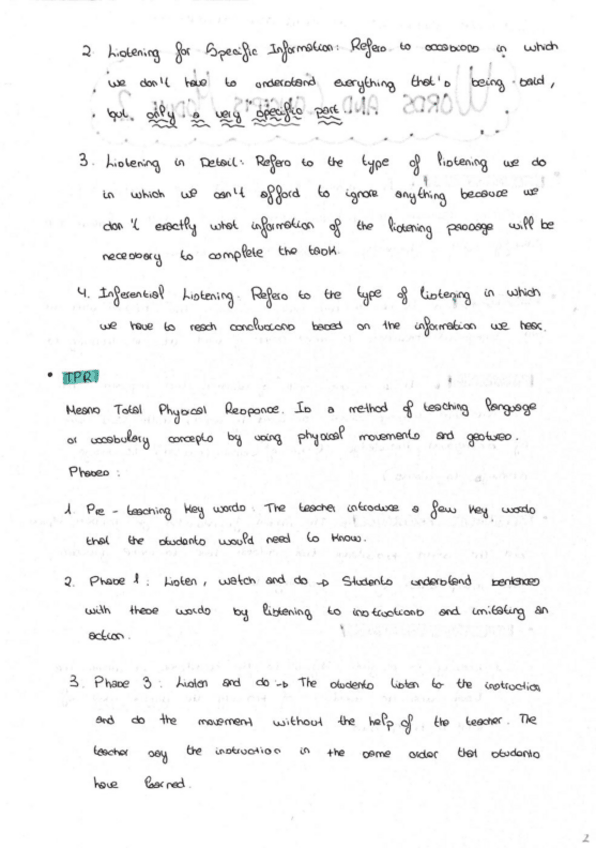 2. Listening for Specific Information: Refers to occasions in which
we don't have to understand everything that's being said,
but only a very specific part.
3. Listening in Detail: Refers to the type of listening we do
in which we can't afford to ignore anything because we
don't exactly what information of the listening passage will be
necessary to complete the task.
4. Inferential Listening. Refers to the type of listening in which
we have to reach conclusions based on the information we hear.
• TPR
Means Total Physical Responce. Is a method of teaching language
or vocabulary concepts by using physical movements and gestures.
Phases:
1. Pre - teaching key words: The teacher introduce a few key words
that the students would need to know.
2. Phase 1: Listen, watch and do → Students understand sentences
with these words by listening to instructions and imitating an
action.
3. Phase 3: Listen and do → The students listen to the instruction
and do the movement without the help of the teacher. The
teacher say the instruction in the same order that students
have learned.
2